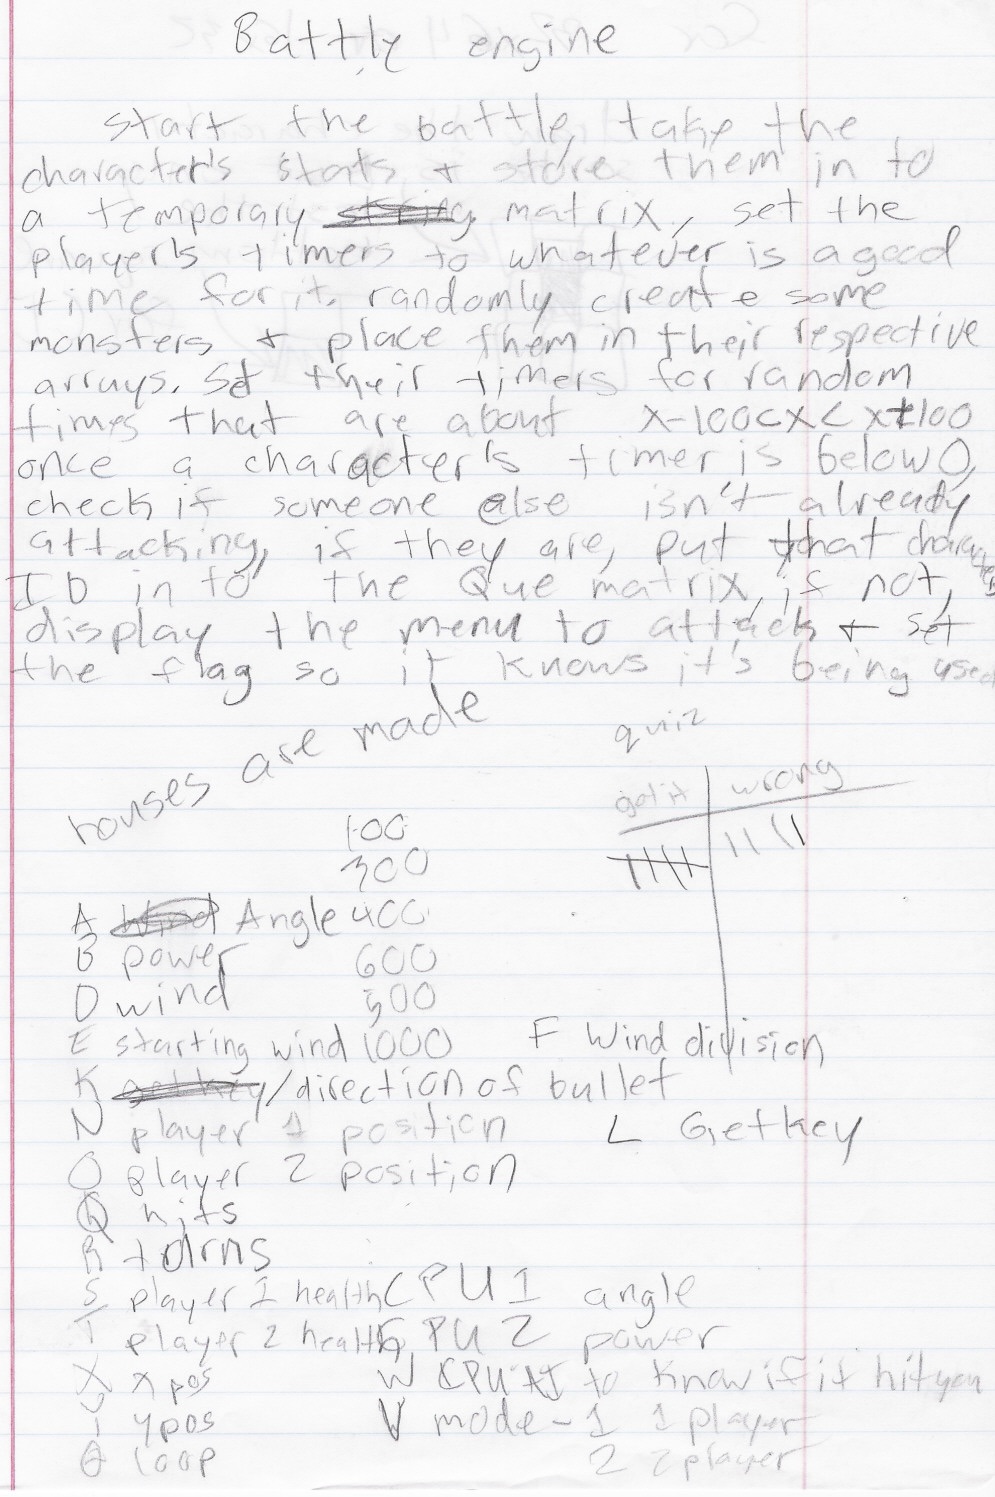 Battle engine
start the battle, take the
character's stats & store them in to
a temporary string matrix, set the
player's timers to whatever is a good
time for it. randomly create some
monsters & place them in their respective
arrays. Set their timers for random
times that are about X-100<X<X+100
once a character's timer is below 0,
check if someone else isn't already
attacking, if they are, put that character's
ID in to the Que matrix, if not,
display the menu to attack & set
the flag so it knows it's being used
houses are made
quiz
got it wrong
100
300
A Wind Angle 400
B power 600
D wind 500
E starting wind 1000 F Wind division
K getkey/direction of bullet
N player 1 position L Getkey
O player 2 position
Q hits
R turns
S player 1 health CPU 1 angle
T player 2 health G PU 2 power
X x pos W CPU AI to know if it hit you
Y y pos V mode - 1 1 player
θ loop 2 2 player